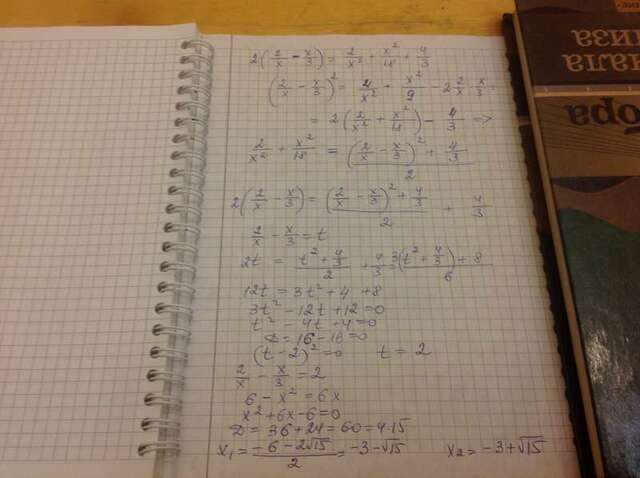 2(2/x - x/3) = 2/x² + x²/18 + 4/3
(2/x - x/3)² = 4/x² + x²/9 - 2 2/x · x/3 =
= 2(2/x² + x²/18) - 4/3 =>
2/x² + x²/18 = ((2/x - x/3)² + 4/3)/2
2(2/x - x/3) = ((2/x - x/3)² + 4/3)/2 + 4/3
2/x - x/3 = t
2t = (t² + 4/3)/2 + 4/3 = (3(t² + 4/3) + 8)/6
12t = 3t² + 4 + 8
3t² - 12t + 12 = 0
t² - 4t + 4 = 0
D = 16 - 16 = 0
(t - 2)² = 0 t = 2
2/x - x/3 = 2
6 - x² = 6x
x² + 6x - 6 = 0
D = 36 + 24 = 60 = 4·15
x₁ = (-6 - 2√15)/2 = -3 - √15 x₂ = -3 + √15
нала
лиза